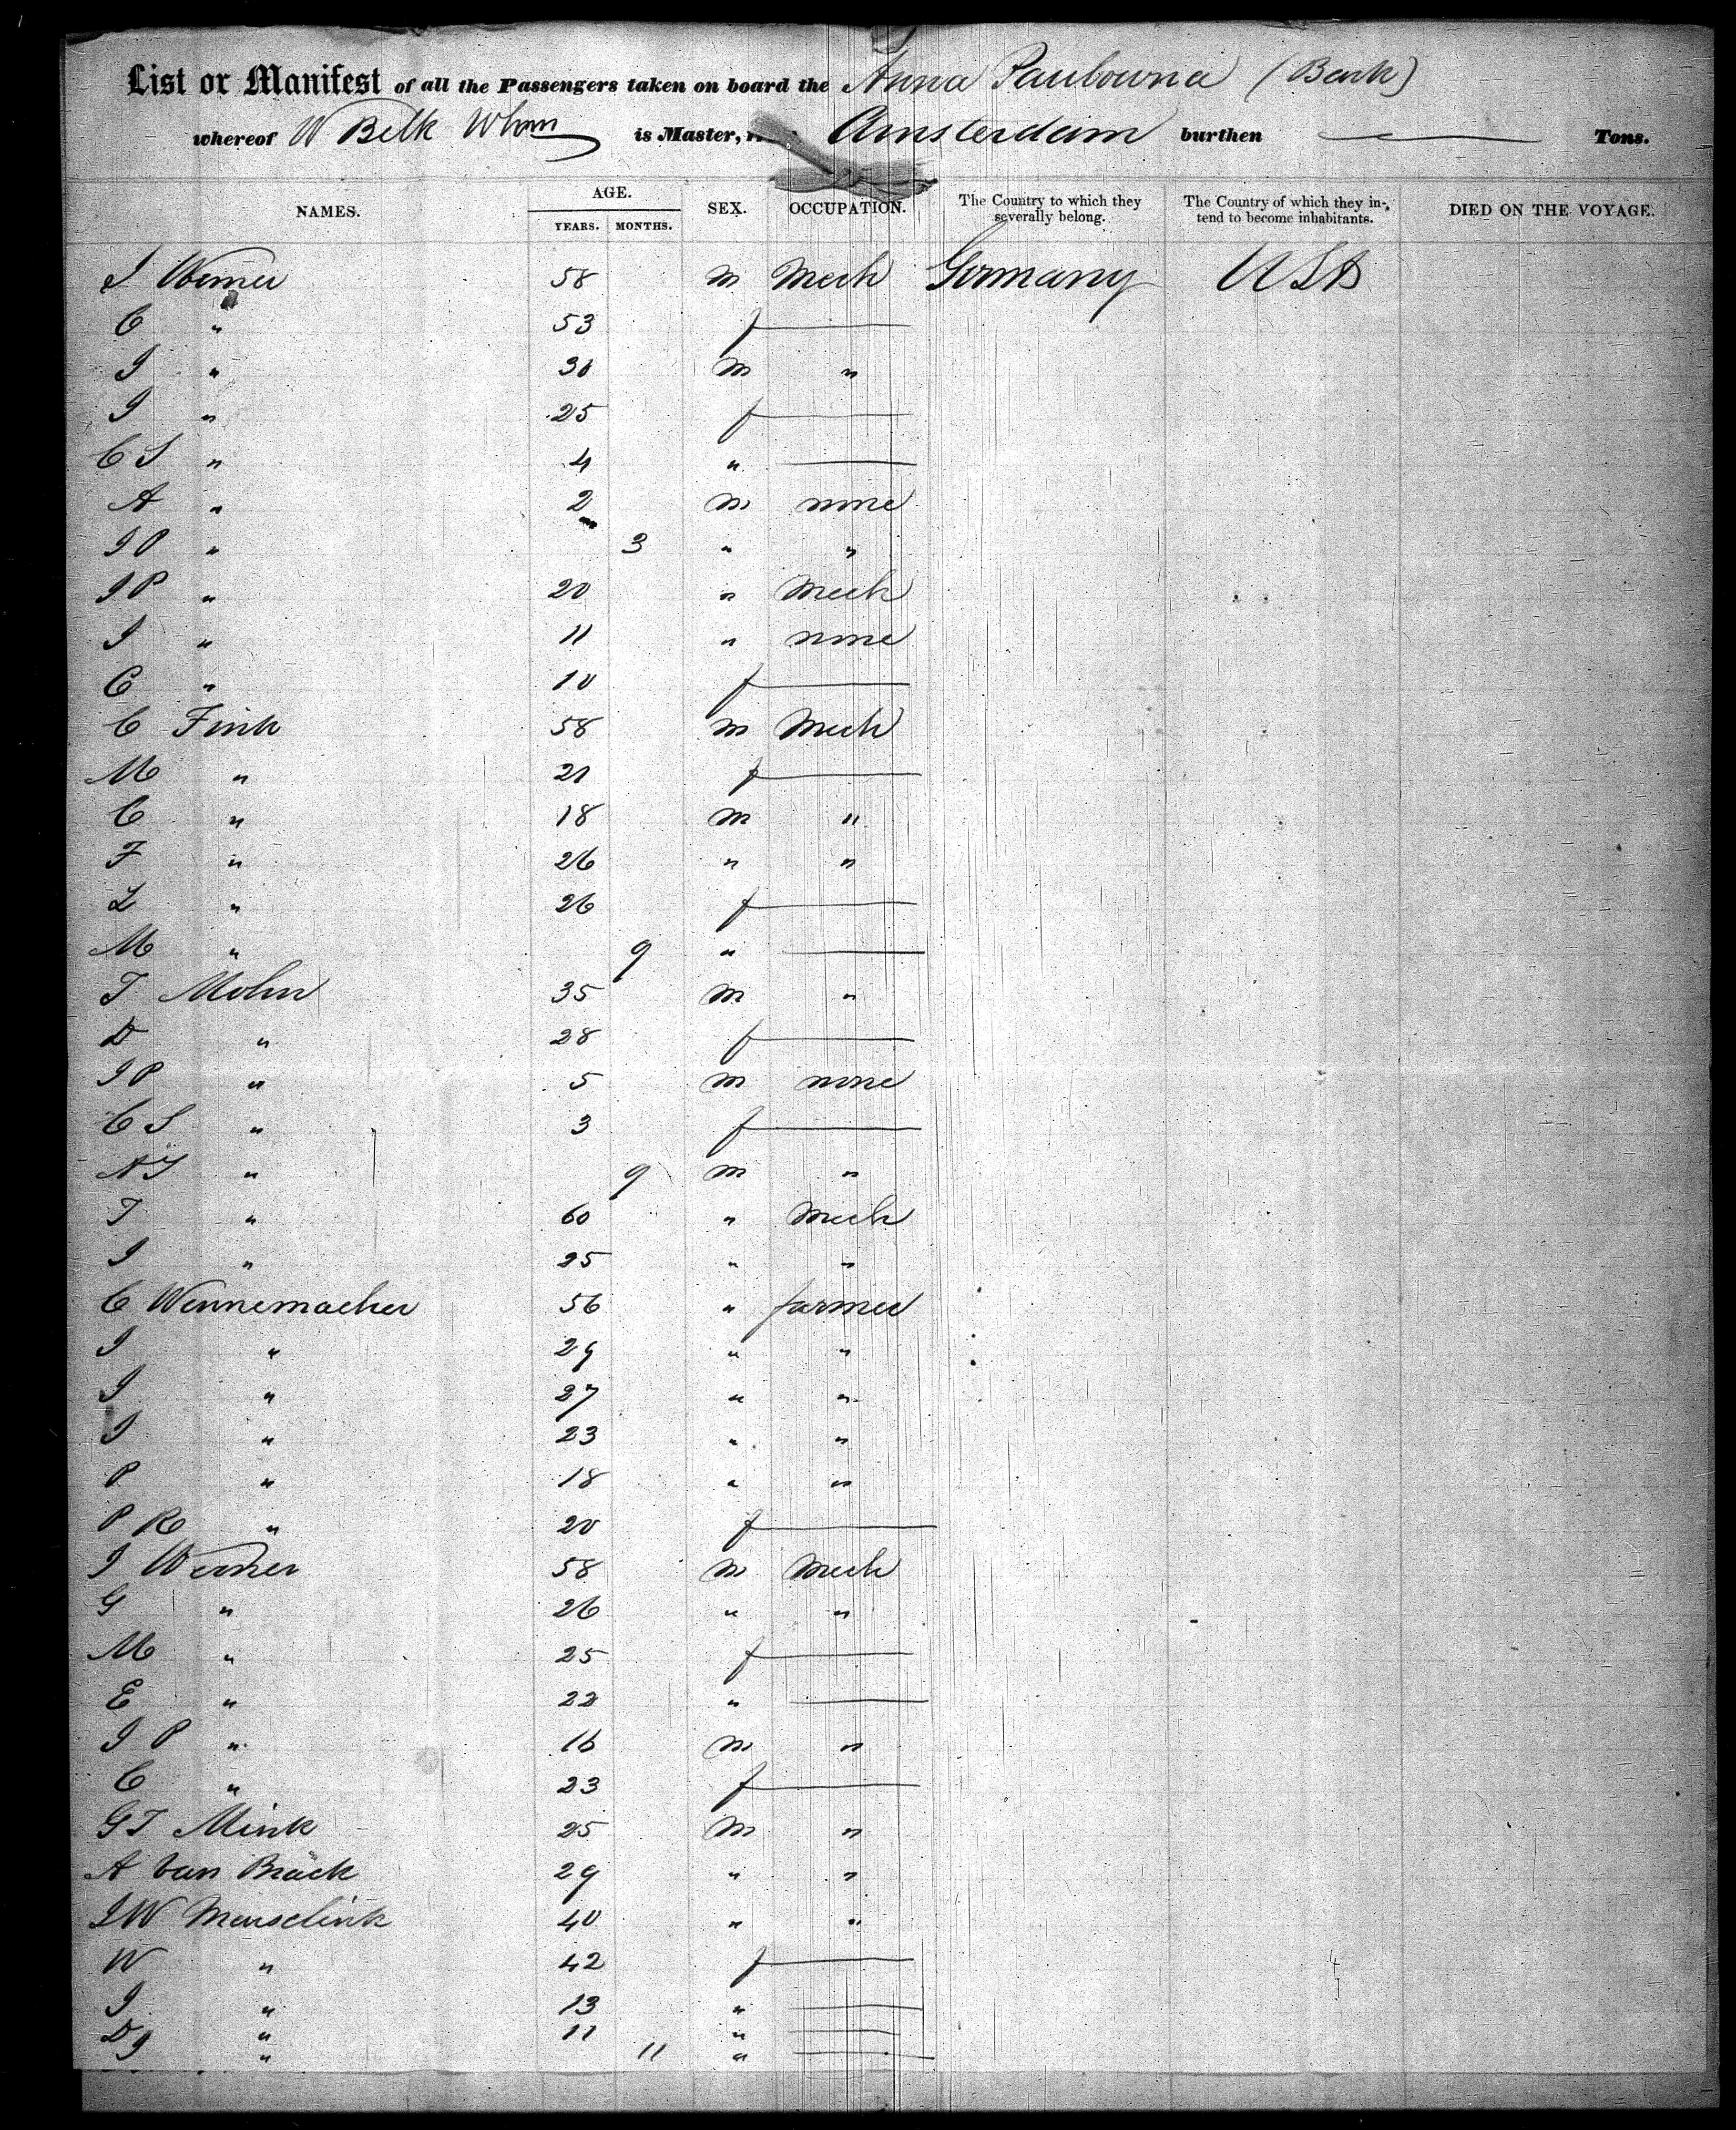 List or Manifest of all the Passengers taken on board the Anna Paulowna (Bark)
whereof W Belk Whm is Master, Amsterdam burthen — Tons.
NAMES. AGE. YEARS. MONTHS. SEX. OCCUPATION. The Country to which they severally belong. The Country of which they intend to become inhabitants. DIED ON THE VOYAGE.
I Werner 58 m Mech Germany USA
C " 53 f —
I " 30 m "
I " 25 f —
C S " 4 " —
A " 2 m none
I P " 3 " "
I P " 20 " Mech
I " 11 " none
C " 10 f —
C Fink 58 m Mech
M " 21 f —
C " 18 m "
F " 26 " "
L " 26 f —
M " 9 " —
T Mohn 35 m "
D " 28 f —
I P " 5 m none
C S " 3 f —
A I " 9 m "
T " 60 " Mech
I " 25 " "
C Wennemacher 56 " farmer
I " 29 " "
I " 27 " "
I " 23 " "
P " 18 " "
P R " 20 f —
I Werner 58 m Mech
G " 26 " "
M " 25 f —
E " 22 " —
I P " 16 m "
C " 23 f —
G I Mink 25 m "
A van Brack 29 " "
I W Menselink 40 " "
W " 42 f —
I " 13 " —
D " 11 " —
I " 11 " —